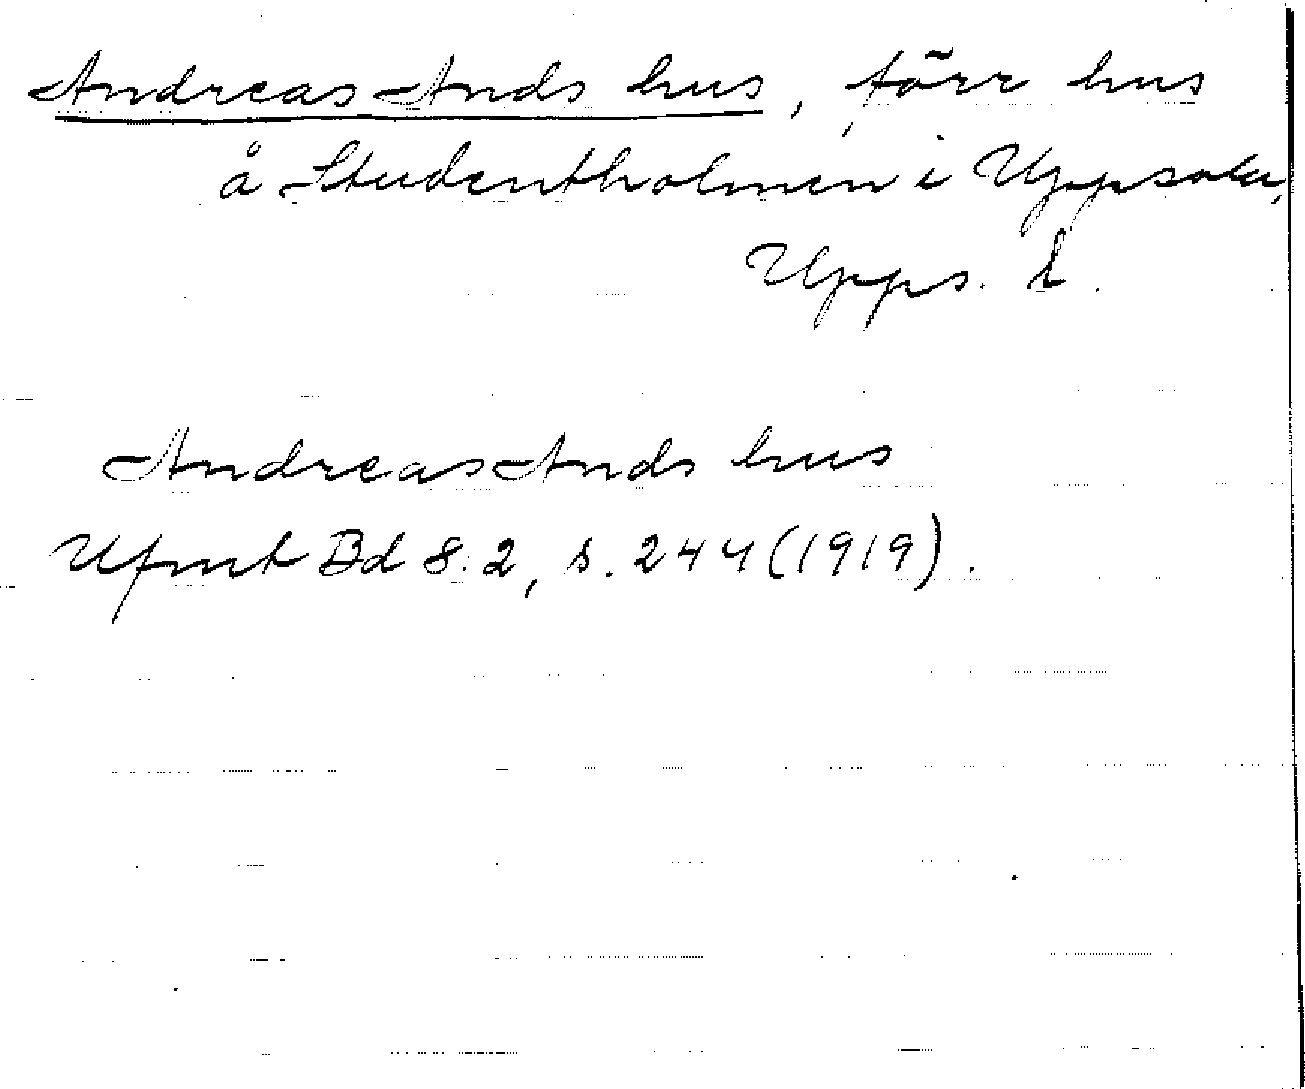 Andreas Ands hus, förr hus
å Studentholmen i Uppsala,
Upps. l.
Andreas Ands hus
Ufmt Bd 8:2, s. 244 (1919).